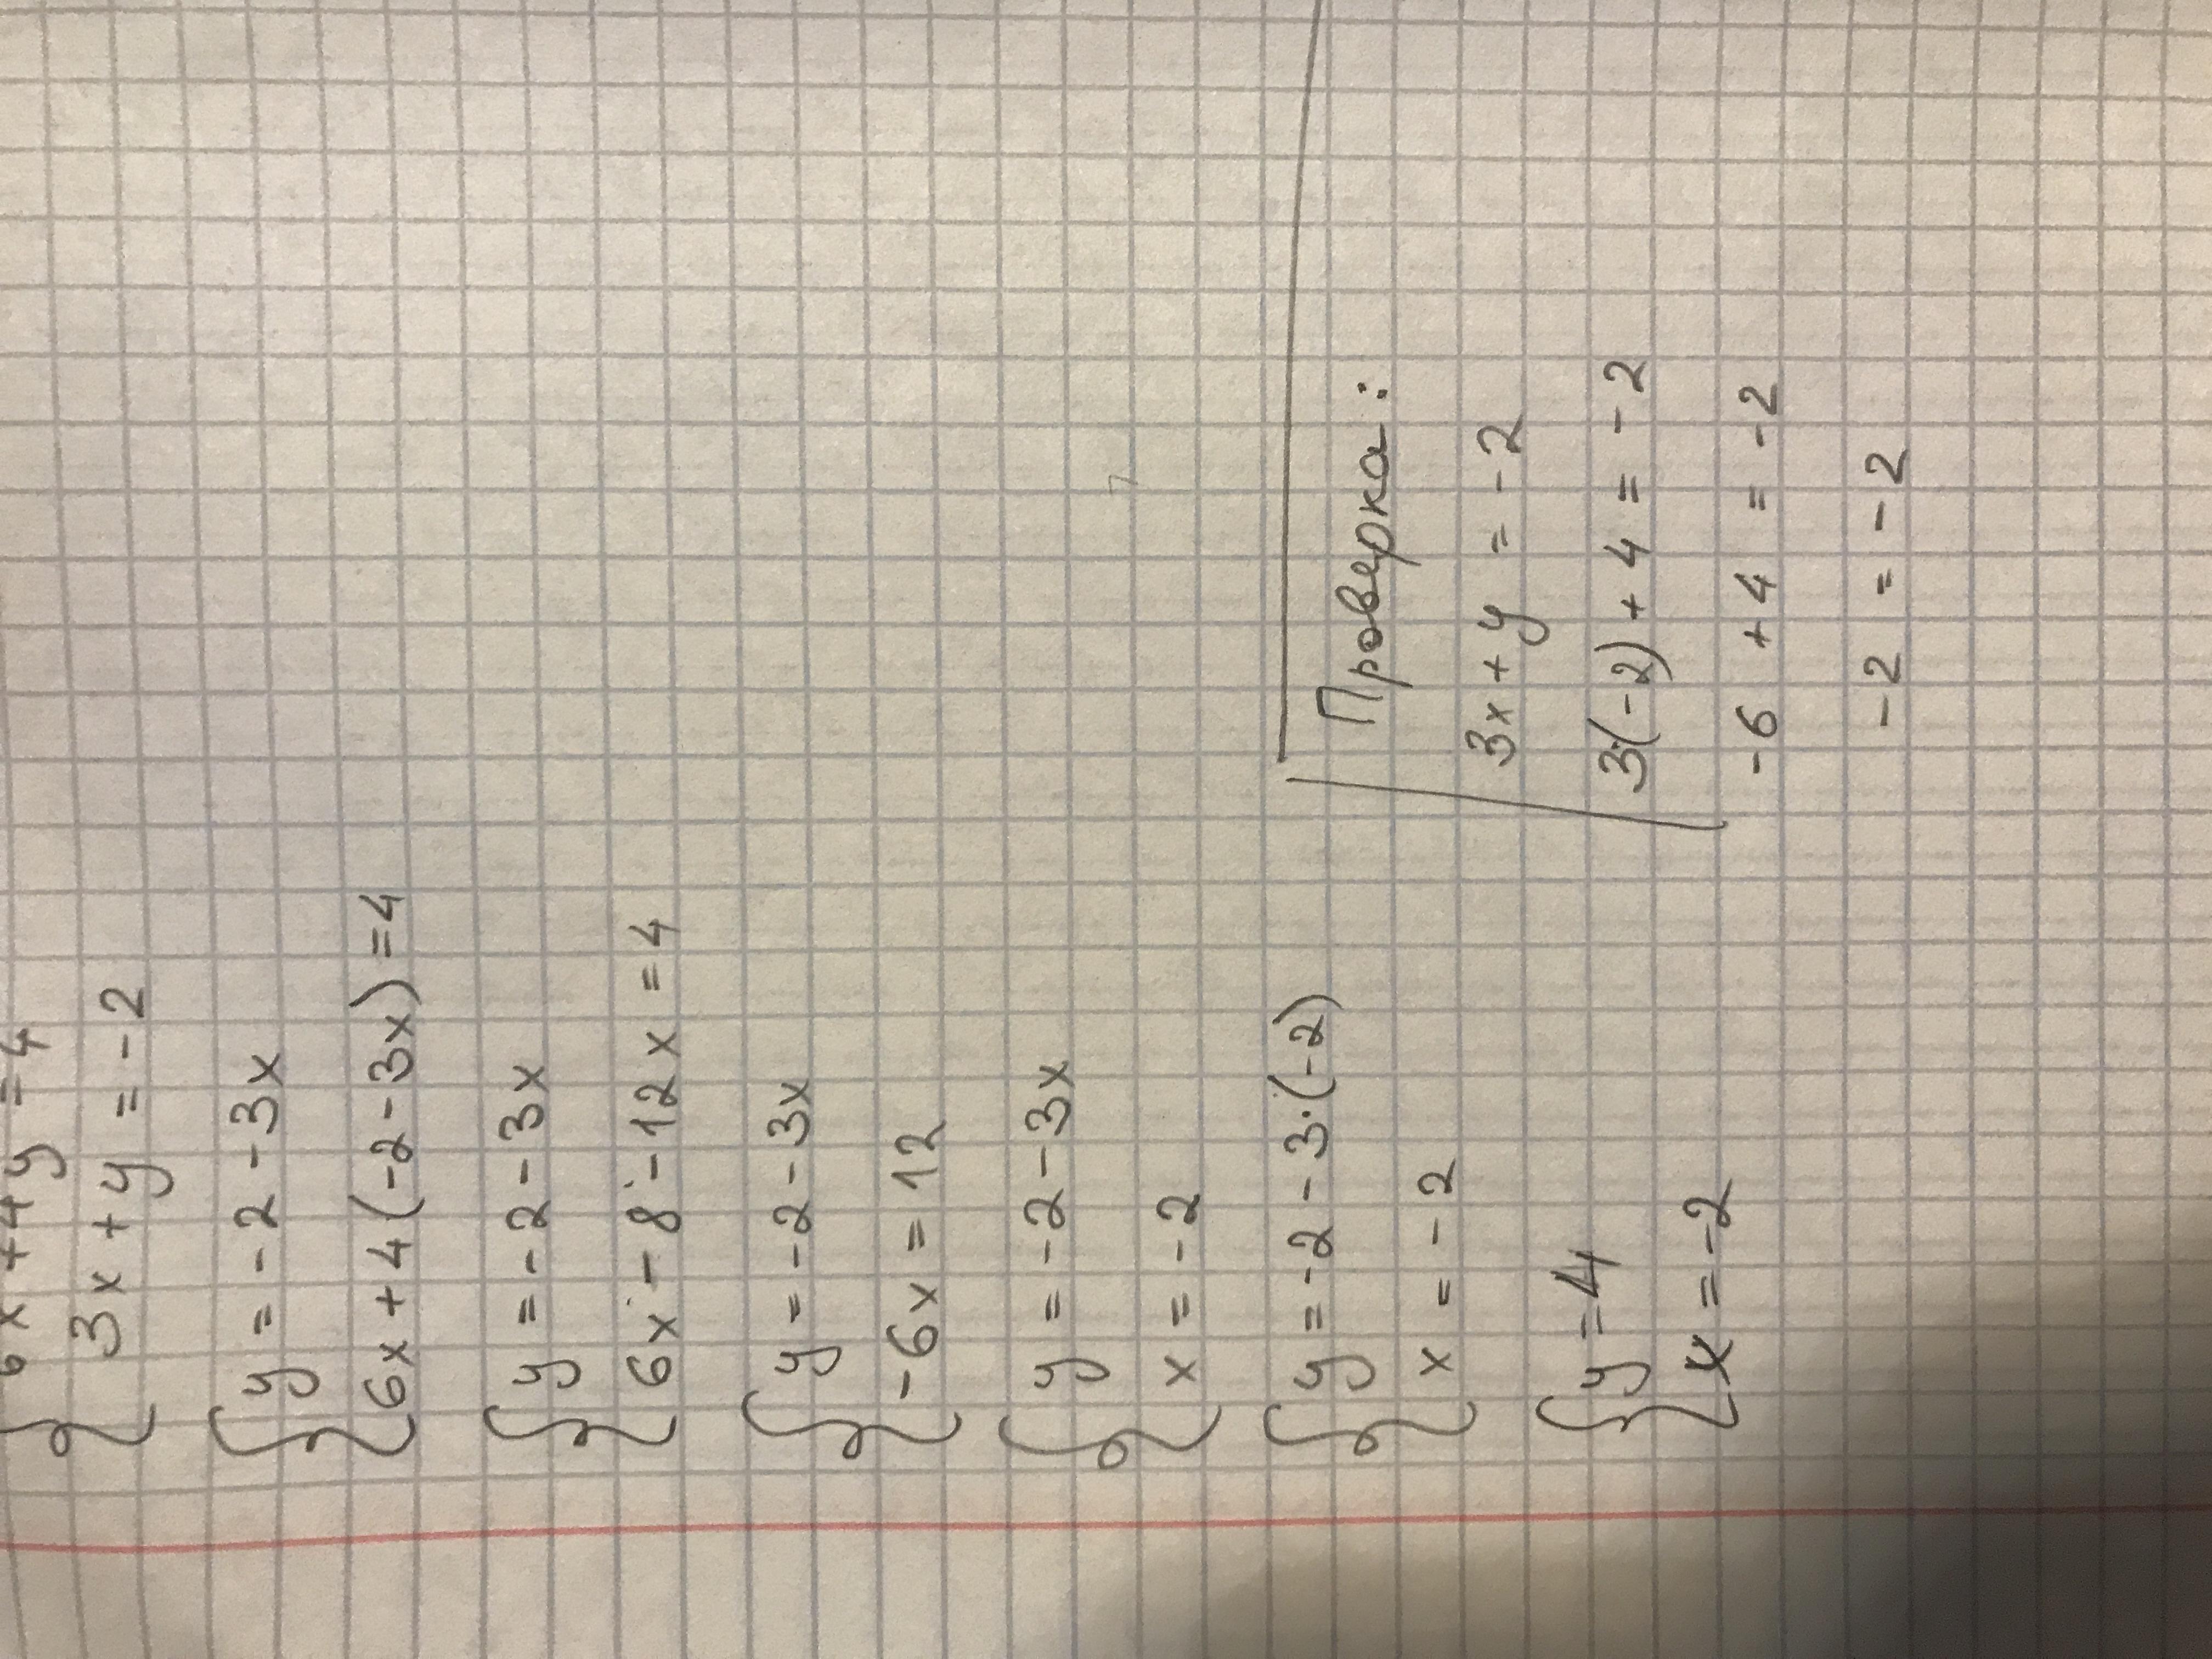 6x + 4y = 4
3x + y = -2
y = -2 - 3x
6x + 4(-2 - 3x) = 4
y = -2 - 3x
6x - 8 - 12x = 4
y = -2 - 3x
-6x = 12
y = -2 - 3x
x = -2
y = -2 - 3·(-2)
x = -2
y = 4
x = -2
Проверка:
3x + y = -2
3·(-2) + 4 = -2
-6 + 4 = -2
-2 = -2